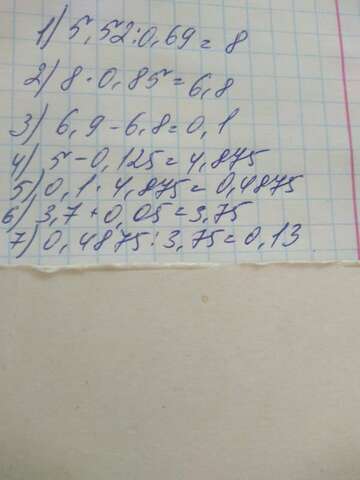 1) 5,52:0,69=8
2) 8·0,85=6,8
3) 6,9-6,8=0,1
4) 5-0,125=4,875
5) 0,1·4,875=0,4875
6) 3,7+0,05=3,75
7) 0,4875:3,75=0,13